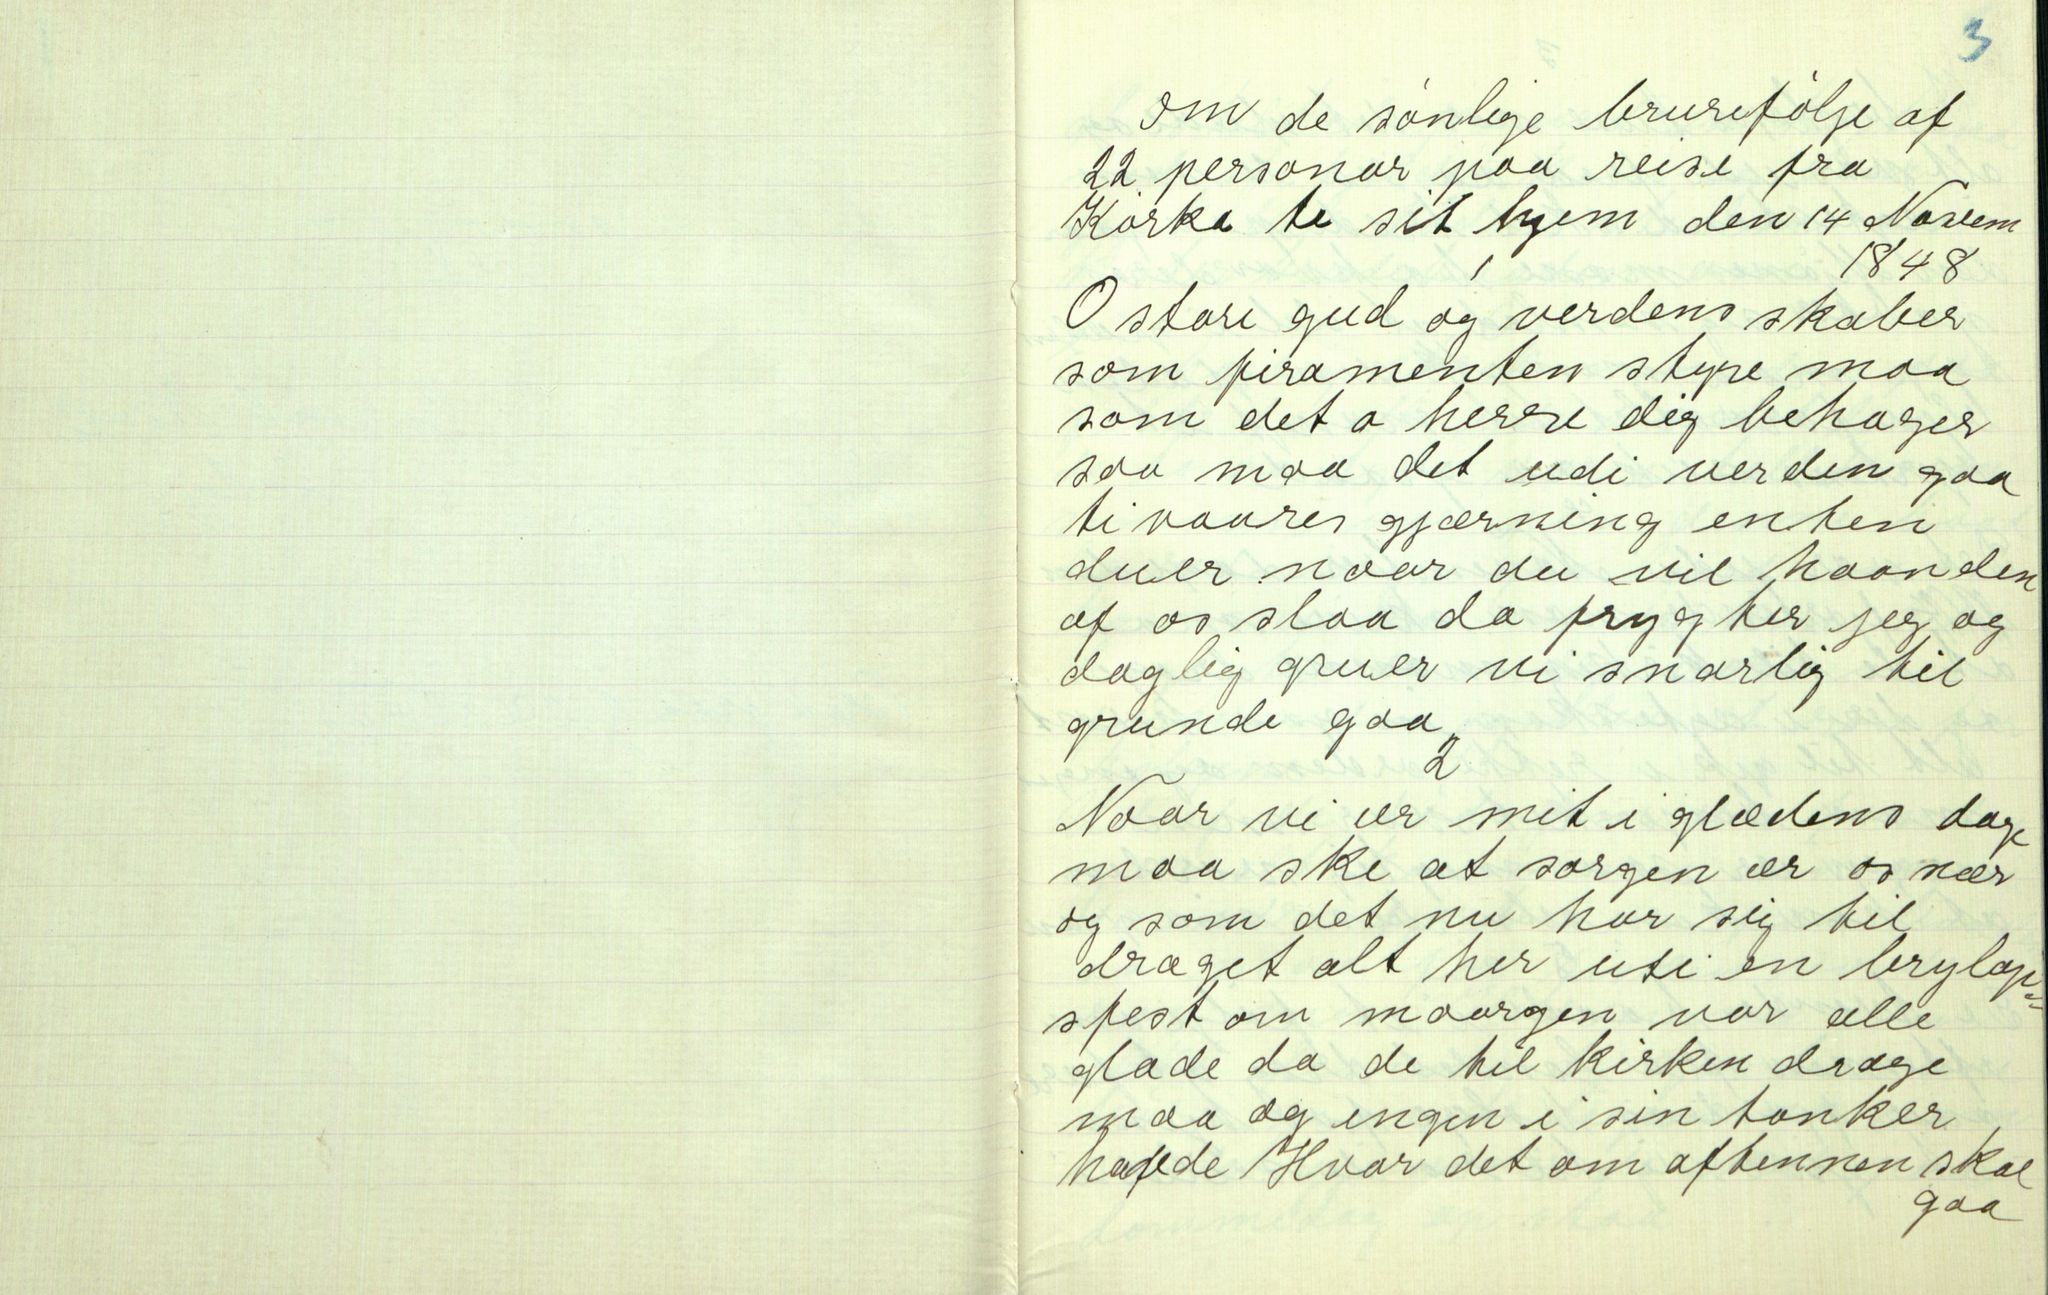 3
om de sónlige brurefölge af
22 personar paa reise fra
Kórka te sit hjem den 14 Novem
1848
1
O store gud og verdens skaber
som firamenten styre maa
som det o herre dig behager
saa maa det udi verden gaa
ti vaares gjærning enten
duer naar du vil haanden
af os slaa da frygter jeg og
daglig gruer vi snarlig til
grunde gaa„
2
Naar vi er mit i glædens dage
maa ske at sorgen er os nær
og som det nu har sig til
draget alt her uti en brylop=
sfest om maargen var alle
glade da de til kirken drage
maa og ingen i sin tanker
hafde Hvor det om aftennen skal
gaa